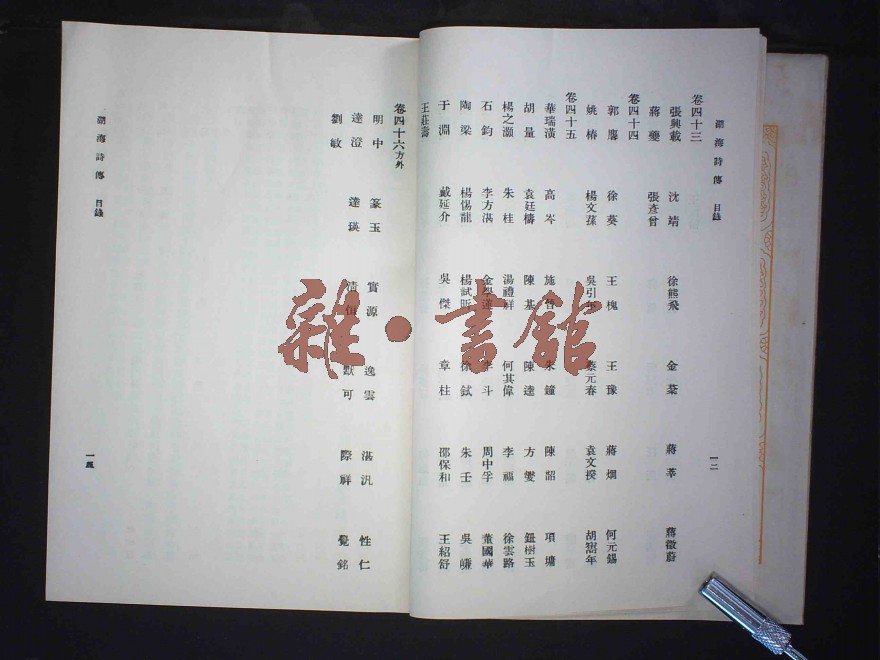 湖海詩傳 目錄
一二
卷四十三
張興載 沈靖 徐熊飛 金菜 蔣莘 蔣徵蔚
蔣夔 張彥曾
卷四十四
郭麐 徐葵 王槐 王豫 蔣炯 何元錫
姚椿 楊文蓀 吳引年 蔡元春 袁文揆
卷四十五
華瑞潢 高岑 施晉 朱鐘 陳韶 項墉
胡量 袁廷檮 陳基 陳逵 方燮 鈕樹玉
楊之灝 朱桂 湯禮祥 何其偉 李福 徐雲路
石鈞 李方湛 李斗 周中孚 董國華
陶梁 楊惕龍 楊試昕 徐鉽 朱壬
于淵 戴延介 吳傑 章柱 邵保和 王紹舒
王莊壽
卷四十六方外
明中 篆玉 實源 逸雲 湛汎 性仁
達澄 達瑛 清恆 默可 際祥 覺銘
劉敏
湖海詩傳 目錄
雜·書館